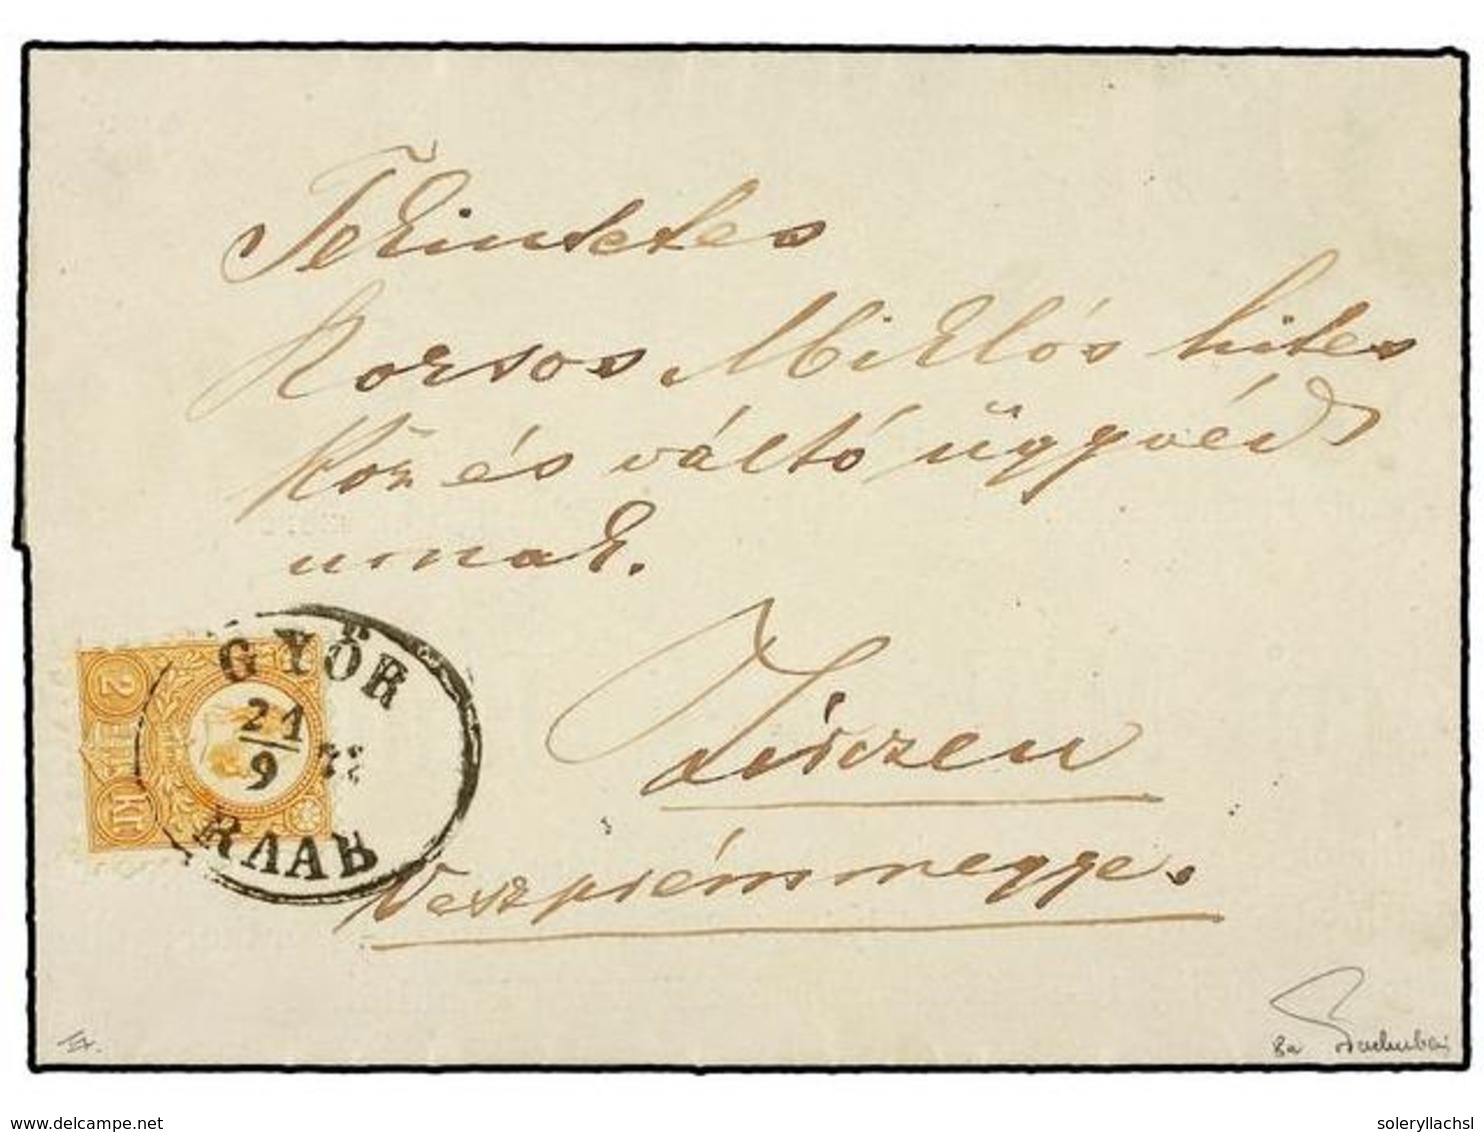 Tekintetes
Korsos Miklós hites
Köz és váltó ügyvéd
urnak.
Zirczen
Veszprémmegye.
GYŐR
21
9
72
RAAB
2
KR
8a
delcampe.net
soleryllachsl